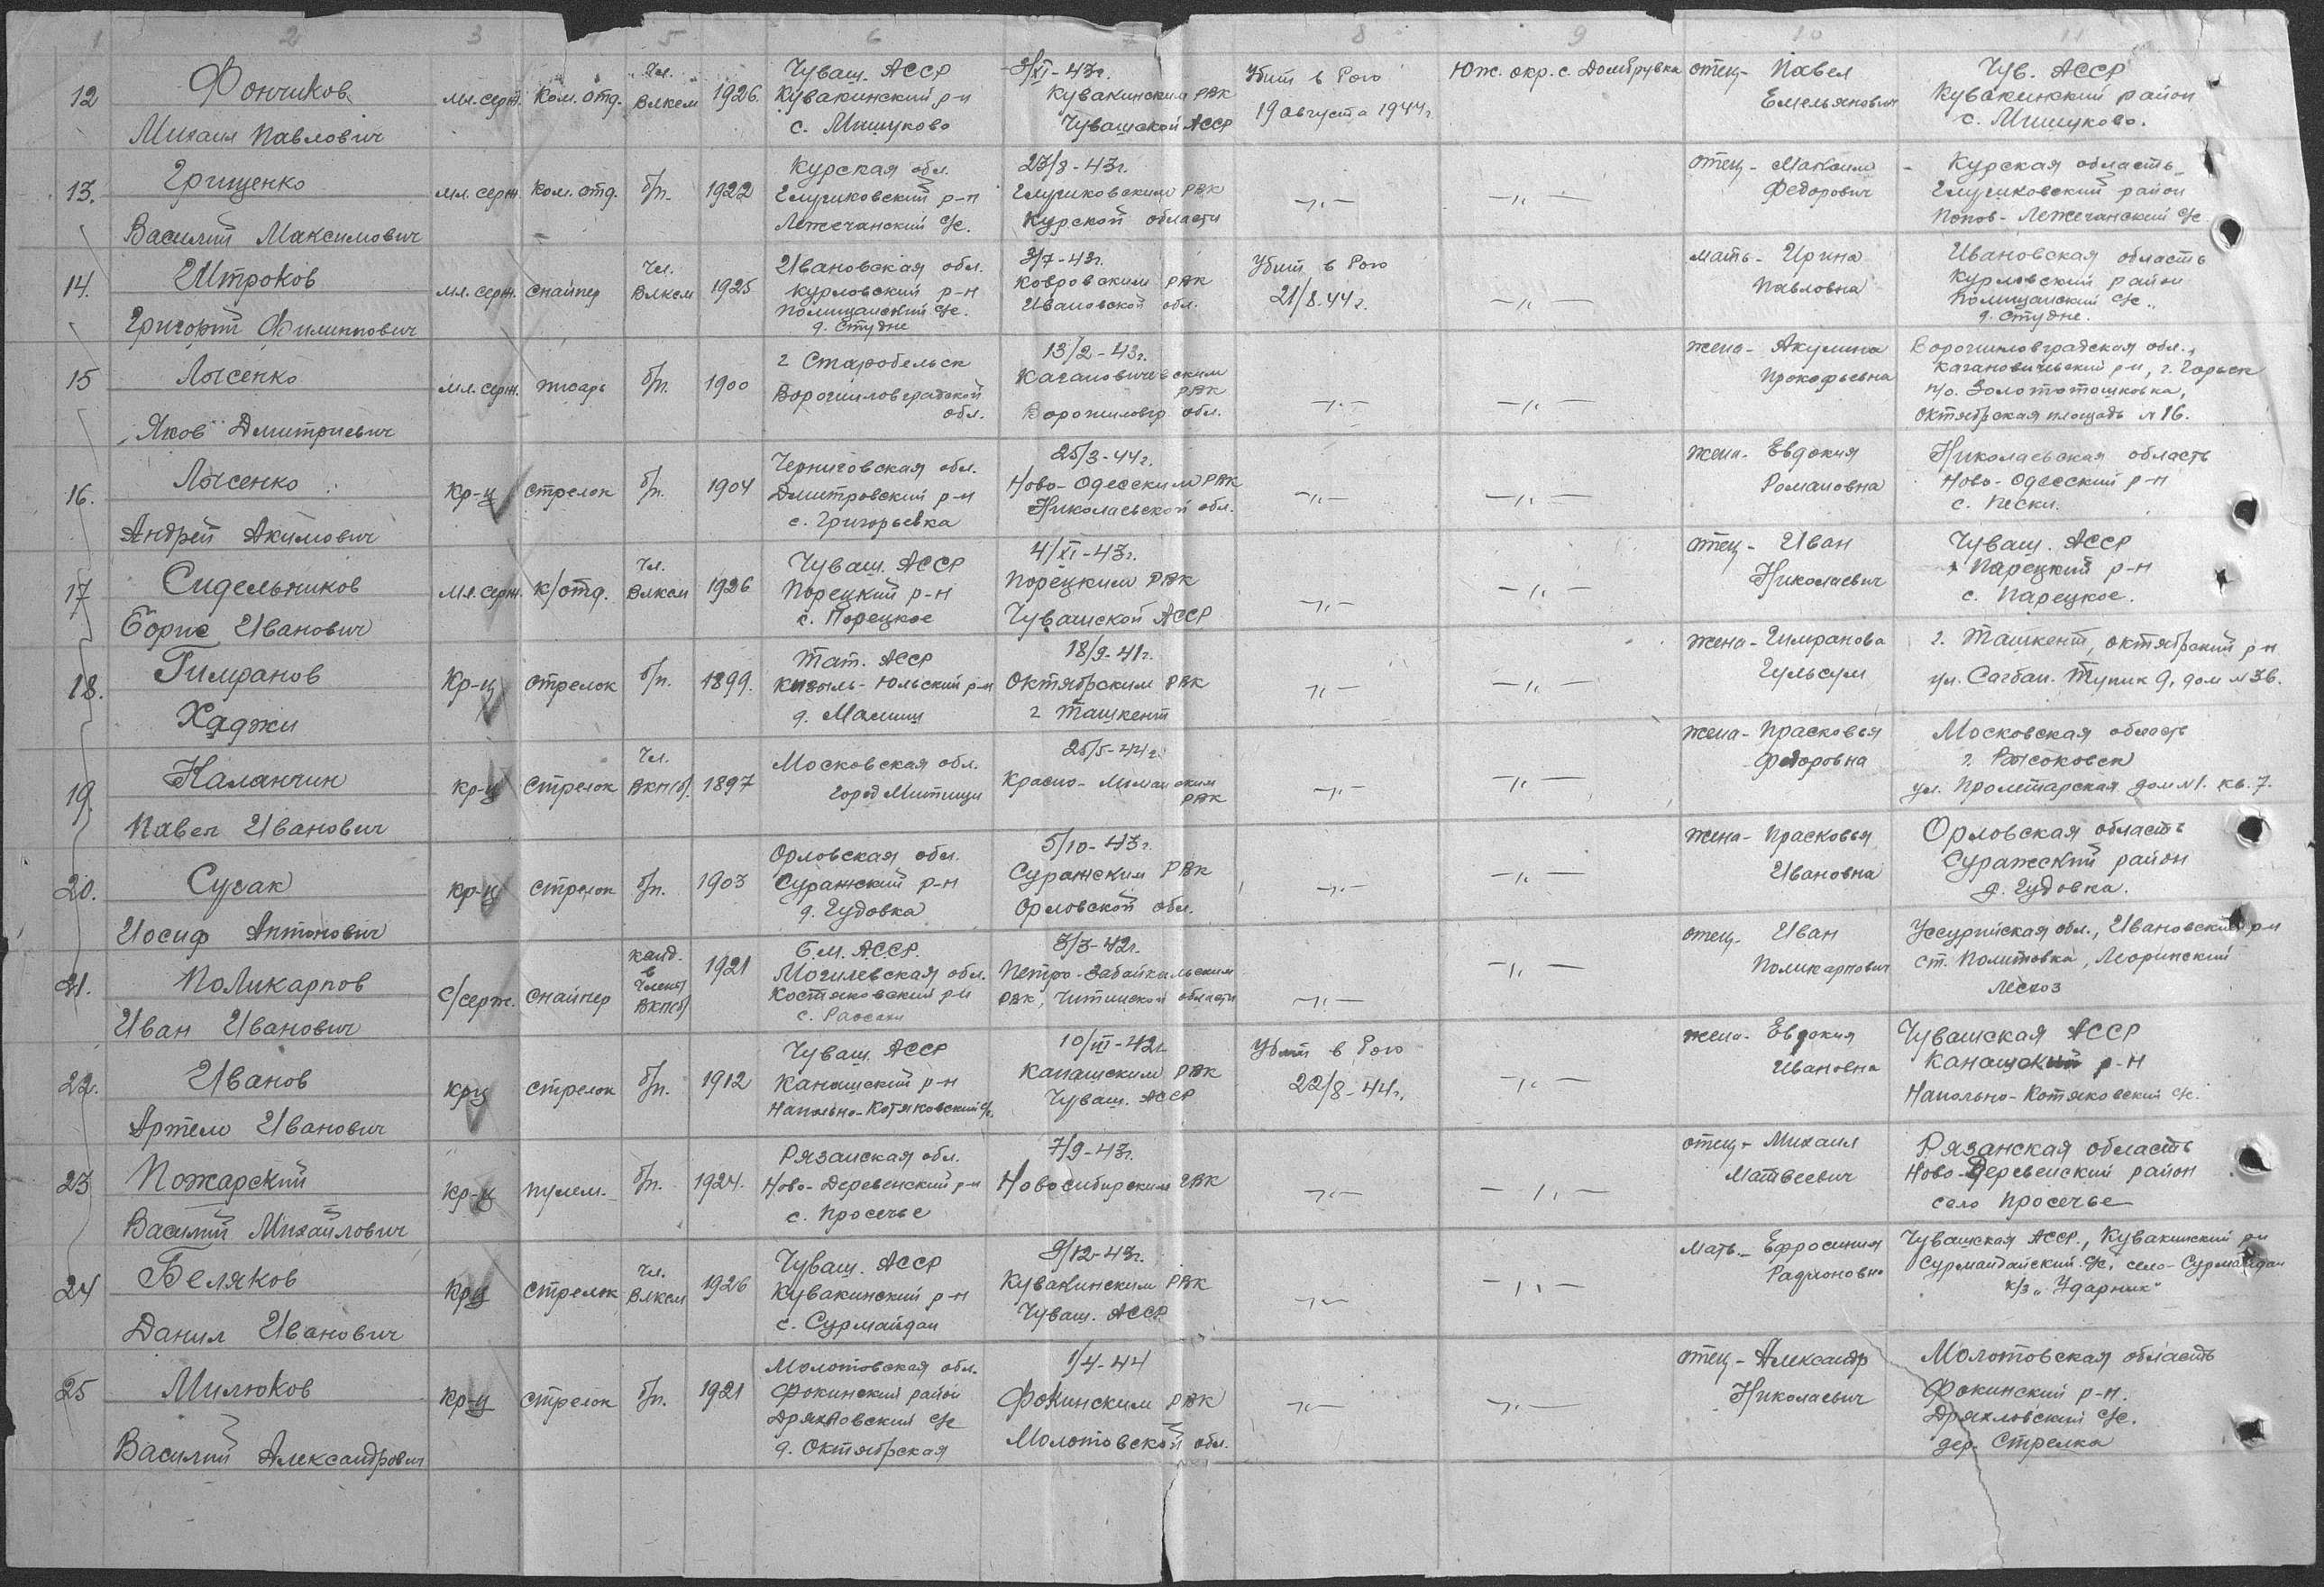 1 2 3 5 6 7 8 9 10 11
12 Фончиков Михаил Павлович мл. серж. Ком. отд. Чл. Влксм 1926 Чуваш. АССР Кувакинский р-н с. Мишуково 3/XI-43г. Кувакинским РВК Чувашской АССР Убит в бою 19 августа 1944г Юж. окр. с. Домбрувка отец- Павел Емельянович Чув. АССР Кувакинский район с. Мишуково.
13. Грищенко Василий Максимович мл. серж. Ком. отд. б/п. 1922 Курская обл. Глушковский р-н Лежечанский с/с. 23/8-43г. Глушковским РВК Курской области -"- -"- отец- Максим Федорович - Курская область Глушковский район Попов-Лежечанский с/с.
14. Штроков Григорий Филиппович мл. серж. Снайпер Чл. Влксм 1925 Ивановская обл. Курловский р-н Полищанский с/с. д. Студне 3/7-43г. Ковровским РВК Ивановской обл. Убит в бою 21/8-44г. -"- мать- Ирина Павловна Ивановская область Курловский район Полищанский с/с. д. Студне.
15 Лысенко Яков Дмитриевич мл. серж. писарь б/п. 1900 г Старобельск Ворошиловградской обл. 13/2-43г. Кагановичевским РВК Ворошиловгр обл. -"- -"- жена- Акулина Прокофьевна Ворошиловградская обл., Кагановичевский р-н, г. Горьск п/о. Золототошковка, Октябрская площадь №16.
16. Лысенко Андрей Акимович Кр-ц стрелок б/п. 1904 Черниговская обл. Дмитровский р-н с. Григорьевка 25/3-44г. Ново-Одесским РВК Николаевской обл. -"- -"- жена- Евдокия Романовна Николаевская область Ново-Одесский р-н с. Пески.
17 Сидельников Борис Иванович мл. серж. к/отд. Чл. Влксм 1926 Чуваш. АССР Порецкий р-н с. Порецкое 4/XI-43г. Порецким РВК Чувашской АССР -"- -"- отец- Иван Николаевич Чуваш. АССР Парецкий р-н с. Парецкое.
18. Гимранов Хаджи Кр-ц стрелок б/п. 1899. Тат. АССР Кызыль-Юльский р-н д. Малиш 18/9-41г. Октябрским РВК г Ташкент -"- -"- жена- Гимранова Гульсум г. Ташкент, Октябрский р-н ул. Сагбан. Тупик 9, дом №36.
19. Каланчин Павел Иванович кр-ц стрелок Чл. ВКП(б). 1897 Московская обл. город Митищи 25/5-44г. Красно-Лиманским РВК -"- -"- жена- Прасковья Федоровна Московская область г. Высоковск ул. Пролетарская дом №1. кв. 7.
20. Сусак Иосиф Антонович кр-ц стрелок б/п. 1903 Орловская обл. Суражский р-н д. Гудовка 5/10-43г. Суражским РВК Орловской обл. -"- -"- жена- Прасковья Ивановна Орловская область Суражский район д. Гудовка.
21. Поликарпов Иван Иванович с/серж. снайпер канд. в члены ВКП(б) 1921 Б.м. АССР. Могилевская обл. Костюковский р-н 3/3-42г. Петро-Забайкальским РВК, Читинской области -"- -"- отец- Иван Поликарпович Уссурийская обл., Ивановский р-н ст. Политовка, Леоринский лесхоз
22. Иванов Артем Иванович крц стрелок б/п. 1912 Чуваш. АССР Канашский р-н Напольно-Котяковский с/с. 10/III-42г. Канашским РВК Чуваш. АССР Убит в бою 22/8-44г. -"- жена- Евдокия Ивановна Чувашская АССР Канашский р-н Напольно-Котяковский с/с.
23 Пожарский Василий Михайлович Кр-ц пулем. б/п. 1924. Рязанская обл. Ново-Деревенский р-н с. Просечье 7/9-43г. Новосибирским ГВК -"- -"- отец- Михаил Матвеевич Рязанская область Ново-Деревенский район село Просечье
24 Беляков Данил Иванович Крц стрелок Чл. Влксм 1926 Чуваш. АССР Кувакинский р-н с. Сурмайдан 9/12-43г. Кувакинским РВК Чуваш. АССР -"- -"- мать- Ефросиния Радионовна Чувашская АССР., Кувакинский р-н Сурмайдайский с/с, село-Сурмайдан к/з "Ударник"
25 Милюков Василий Александрович Кр-ц стрелок б/п. 1921 Молотовская обл. Фокинский район Дряхловский с/с д. Октябрская 1/4-44 Фокинским РВК Молотовской обл. -"- -"- отец- Александр Николаевич Молотовская область Фокинский р-н. Дряхловский с/с. дер. Стрелка